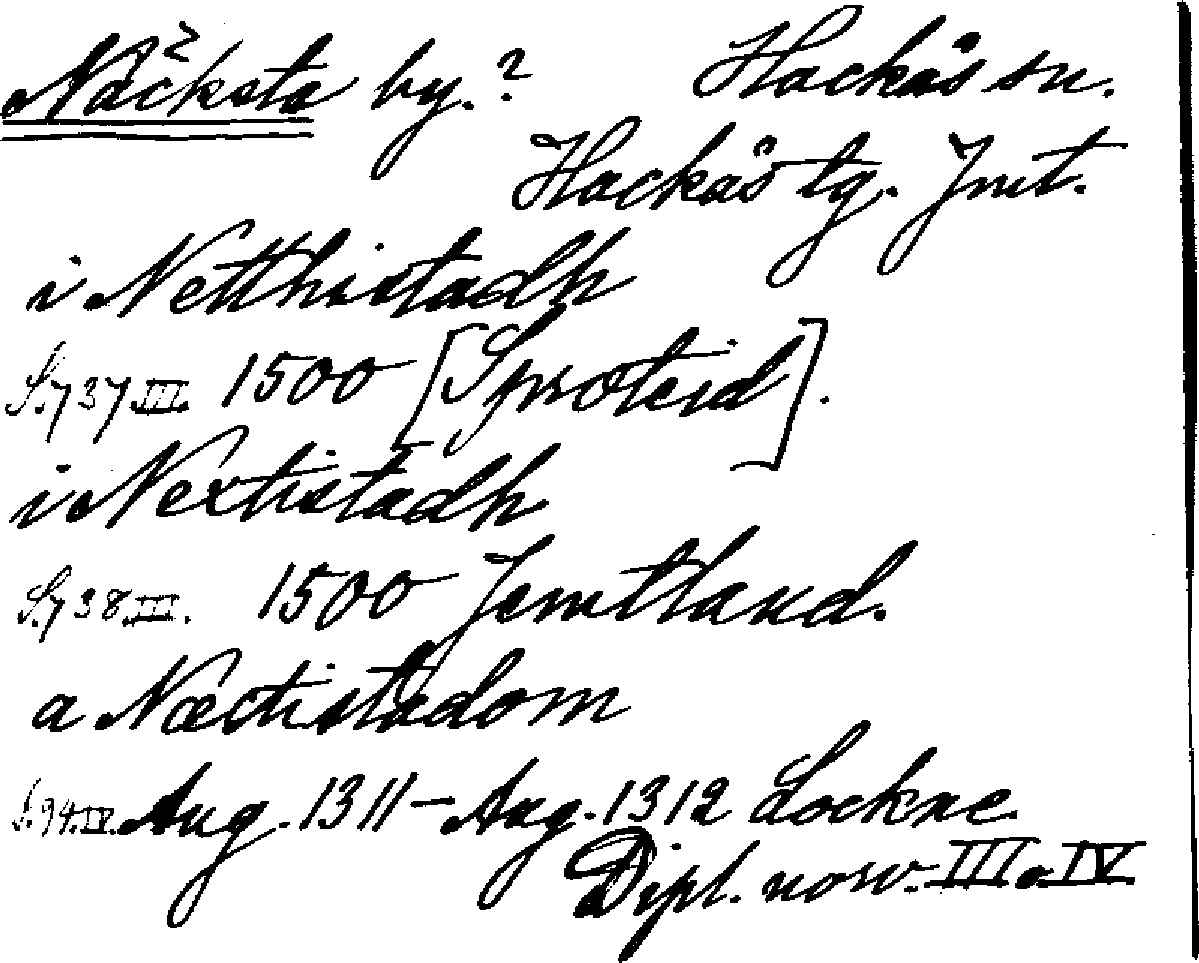 Näcksta by.? Hackås sn.
Hackås tg. Jmt.
i Netthistadh
S. 737 III. 1500 [Sproteid].
i Nextistadh
S. 738 III. 1500 Jemtland.
a Næctistadom
S. 94. IV. Aug. 1311 – Aug. 1312 Lockne.
Dipl. norv. III o. IV